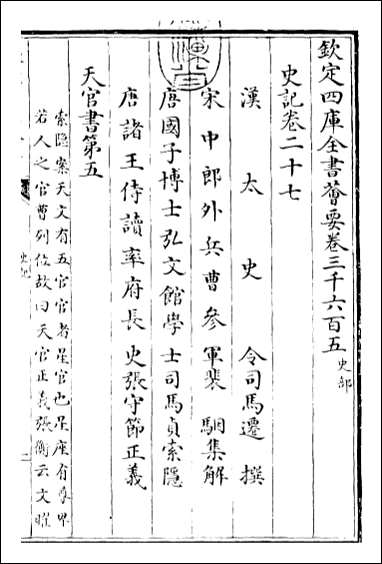 欽定四庫全書薈要卷三千六百五史部
史記卷二十七
漢太史令司馬遷撰
宋中郎外兵曹參軍裴駰集解
唐國子博士弘文館學士司馬貞索隱
唐諸王侍讀率府長史張守節正義
天官書第五
索隱案天文有五官官者星官也星座有尊卑
若人之官曹列位故曰天官正義張衡云文曜